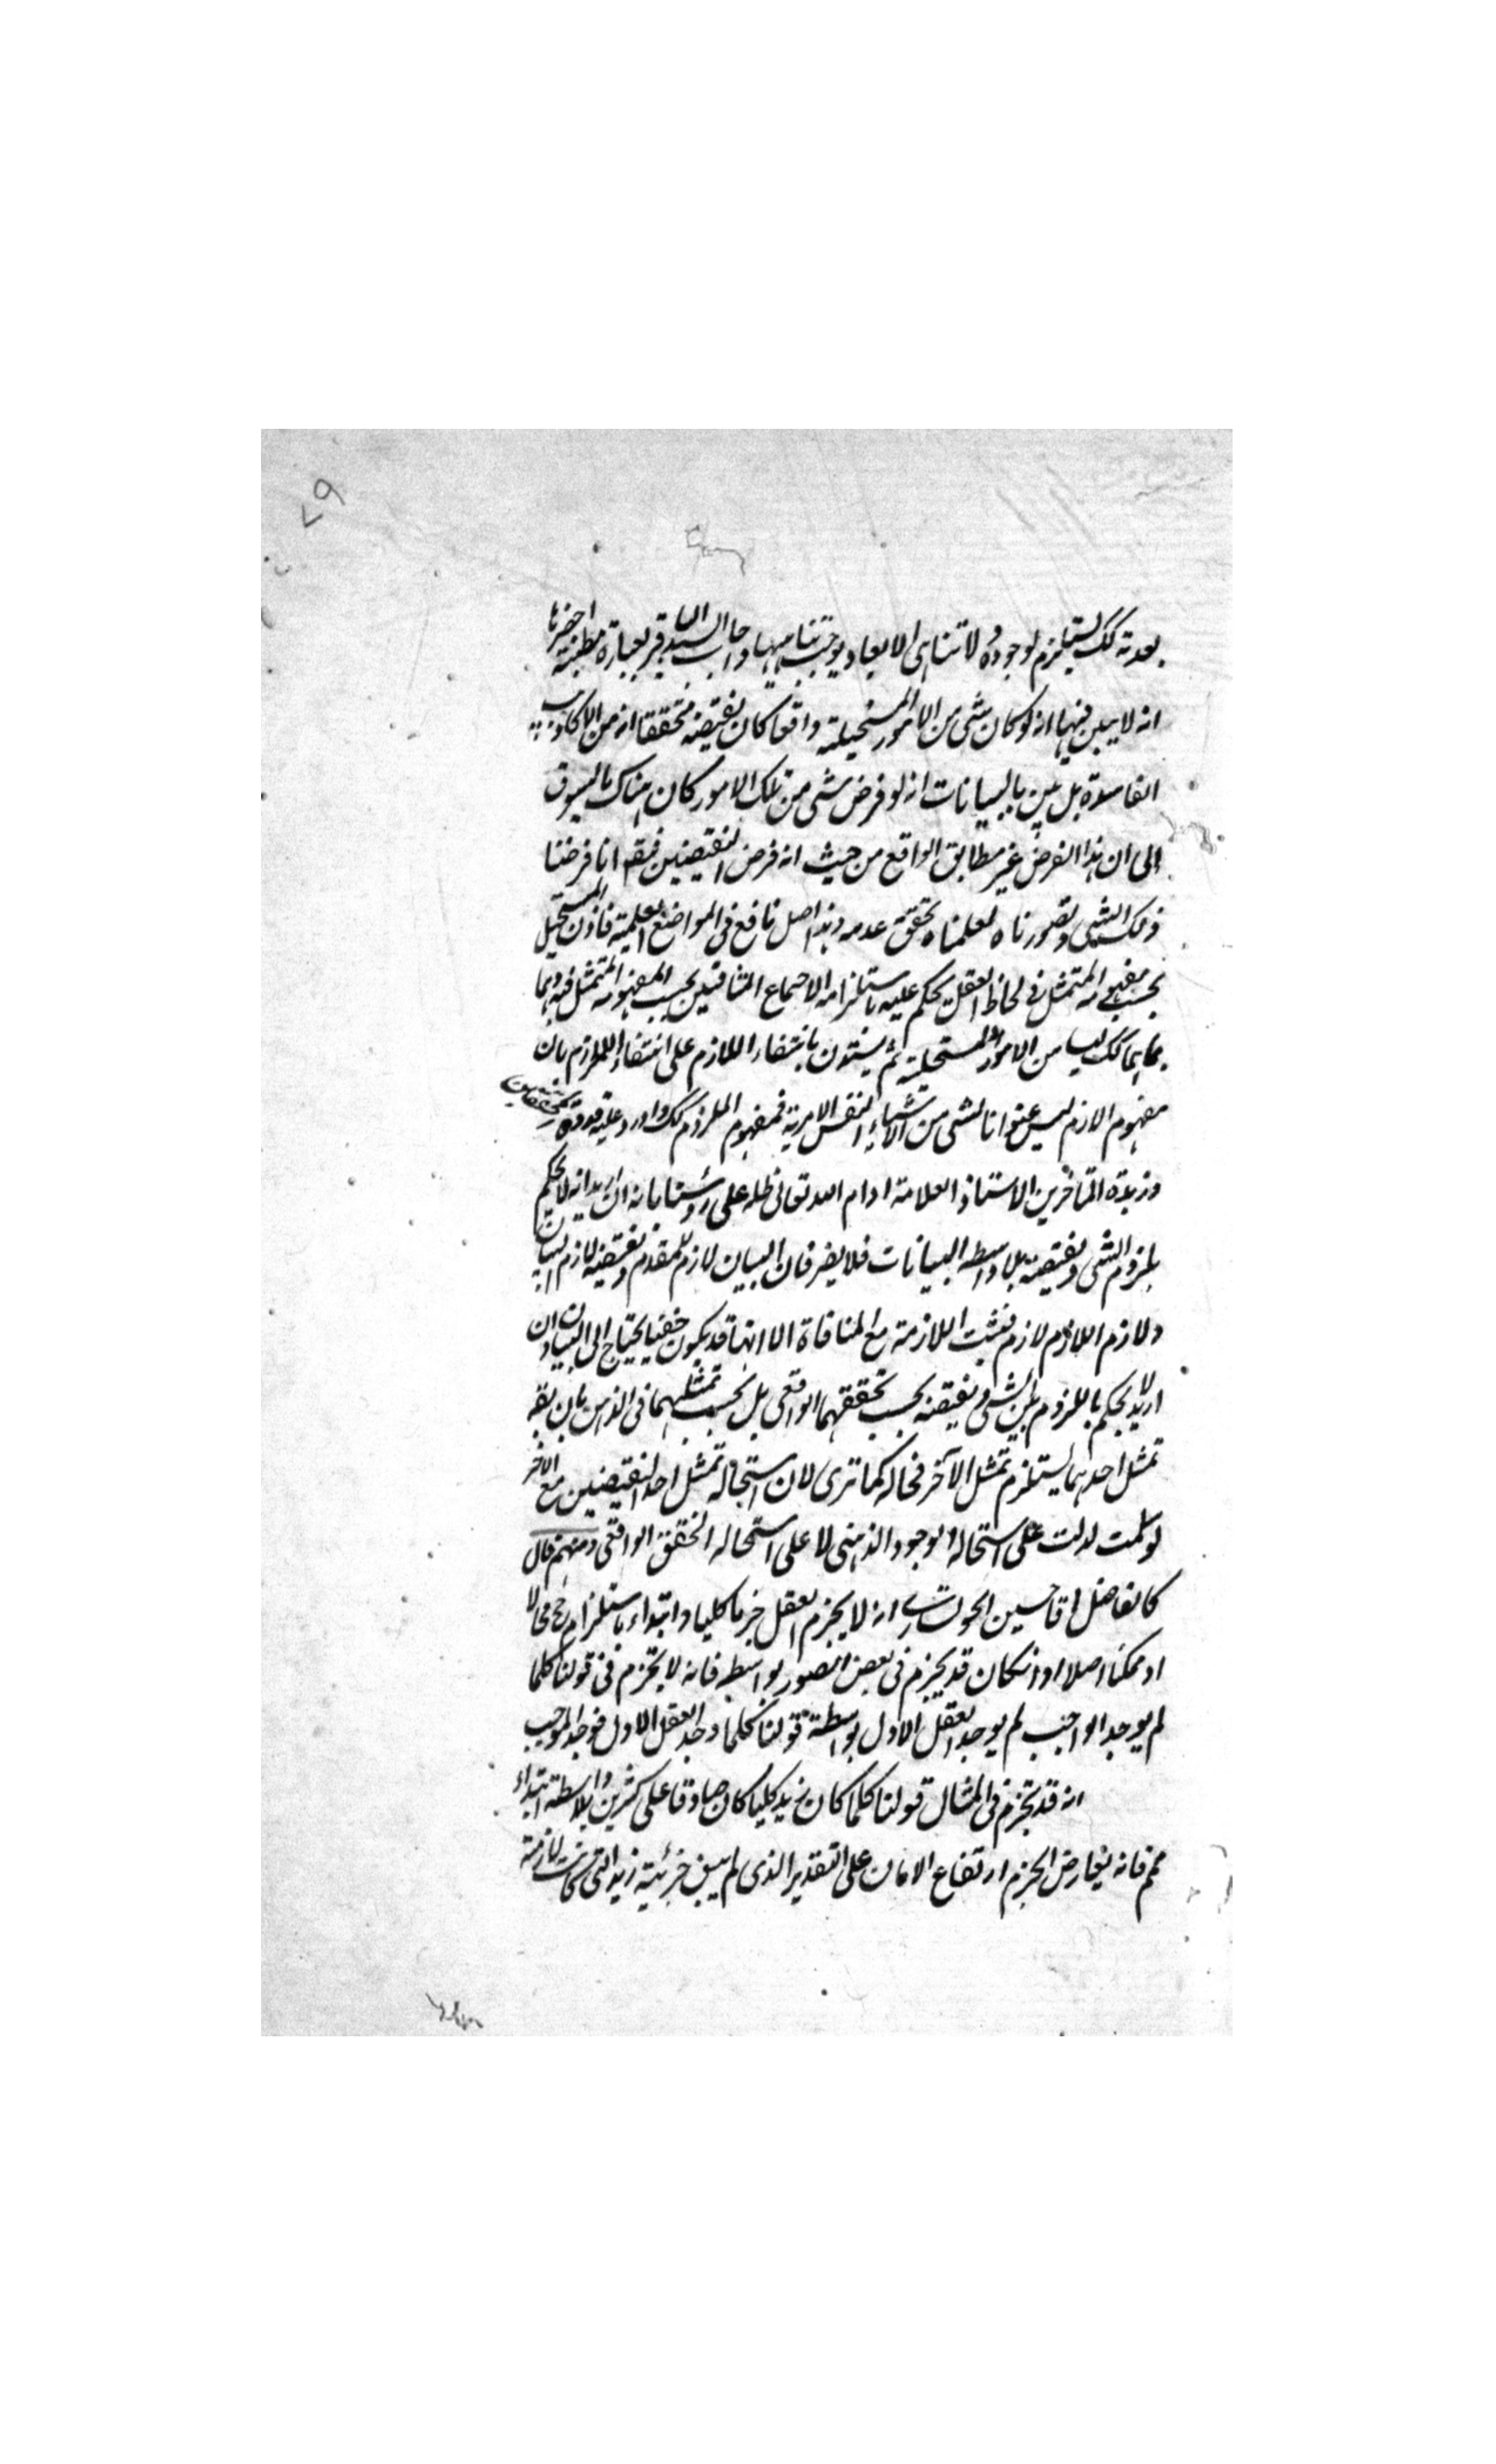 ٧٩
بعدته كك يستلزم لوجوده ولا تناهى الابعاد يوجب تناهيها واجاب السيد الباقر بعبارة مطنبة اخرها
انه لا يبين فيها انه لو كان شى من الامور المستحيلة واقعا كان نقيضه متحققا انه من الاكاذيب
الفاسدة بل يبين بالبيانات انه لو فرض شى من تلك الامور كان هناك ما يسوق
الى ان هذا الفرض غير مطابق الواقع من حيث انه فرض النقيضين فيقه انا فرضنا
ذلك الشى وتصورناه لعلمناه تحقق عدمه وهذا اصل نافع فى المواضع العلمية فاذن المستحيل
بحسب مفهومه المتمثل فى لحاظ العقل يحكم عليه باستلزامه الاجماع المتنافيين بحسب المفهومه المتمثل فيه وهما
بما هما كك ليسا من الامور المستحيلة ثم يبنون بانتفاء اللازم على انتفاء الملزوم بان
مفهوم الازم ليس عنوانا لشى من الاشياء النفس الامرية فمفهوم الملزوم كك واورد عليه قدوة المحققين
وزبدة المتأخرين الاستاذ العلامة ادام الله تعالى ظله على رؤسنا بانه ان اريد انه لا يحكم
بلزوم الشى ونقيضه بلا واسطه البيانات فلا يضر فان البيان لازم للمقدم ونقيضه لازم البيان
ولازم اللازم لازم فثبت اللازمة مع المنافاة الا انها قد يكون خفيا يحتاج الى البيان وان
اريد لا يحكم باللزوم بين شى ونقيضه بحسب تحققهما الواقعى بل بحسب تمثلهما فى الذهن بان يقه
تمثل احدهما يستلزم تمثل الآخر فحاله كما ترى لان استحالة تمثل احد النقيضين مع الاخر
لو سلمت لدلت على استحالة الوجود الذهنى لا على استحاله التحقق الواقعى ومنهم قال
كالفاضل اقا حسين الخوانسارى انه لا يجزم العقل جزما كليا وابتداء باستلزام مح محالا
او ممكنا اصلا وان كان قد يجزم فى بعض الصور بواسطه فانه لا يجزم فى قولنا كلما
لم يوجد الواجب لم يوجد العقل الاول بواسطة قولنا كلما وجد العقل الاول فوجد الموجب
انه قد يجزم فى المثال قولنا كلما كان زيد كليا كان صادقا على كثرين بلا واسطة ابتداء
فانه يعارض الجزم ارتفاع الامان على التقدير الذى لم يبق جزئية زيد التى كانت لازمة